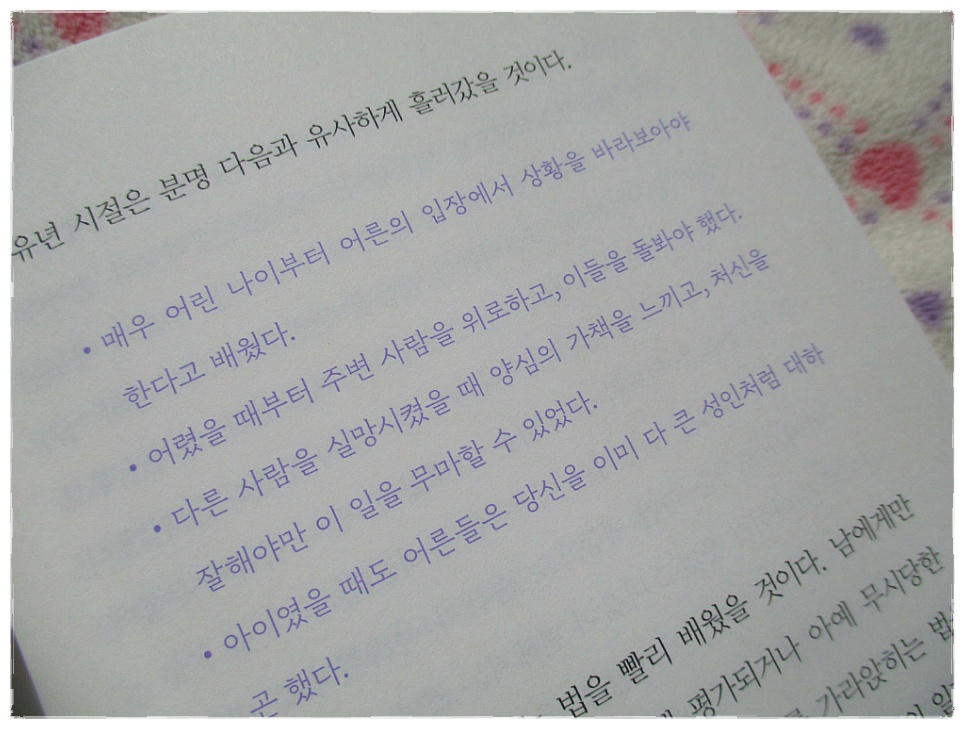 유년 시절은 분명 다음과 유사하게 흘러갔을 것이다.
• 매우 어린 나이부터 어른의 입장에서 상황을 바라보아야
한다고 배웠다.
• 어렸을 때부터 주변 사람을 위로하고, 이들을 돌봐야 했다.
• 다른 사람을 실망시켰을 때 양심의 가책을 느끼고, 처신을
잘해야만 이 일을 무마할 수 있었다.
• 아이였을 때도 어른들은 당신을 이미 다 큰 성인처럼 대하
곤 했다.
법을 빨리 배웠을 것이다. 남에게만
평가되거나 아예 무시당한
가라앉히는 법